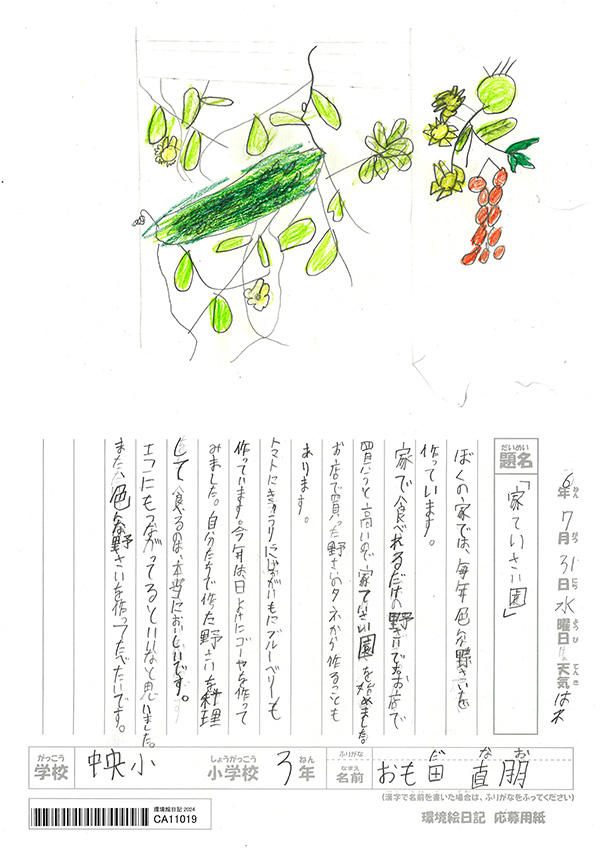 6年7月31日水曜日 天気はれ
ねん がつ にち ようび てんき
だいめい
題名
「家ていさい園」
ぼくの家では、毎年色んな野さいを
作っています。
家で食べれるだけの野さいでもお店で
買うと高いので家ていさい園を始めました。
お店で買った野さいのタネから作ることも
あります。
トマトにきゅうりにじゃがいもにブルーベリーも
作っています。今年は日よけにゴーヤを作って
みました。自分たちで作た野さいを料理
して食るのは、本当においしいです。
エコにもつながってるといいなと思いました。
また、色んな野さいを作ってたべたいです。
がっこう
学校
小
しょうがっこう
小学校
3年
ねん
ふりがな
なまえ
名前
だ なお
おも田 直朋
(漢字で名前を書いた場合は、ふりがなをふってください)
環境絵日記 2024
CA11019
環境絵日記 応募用紙